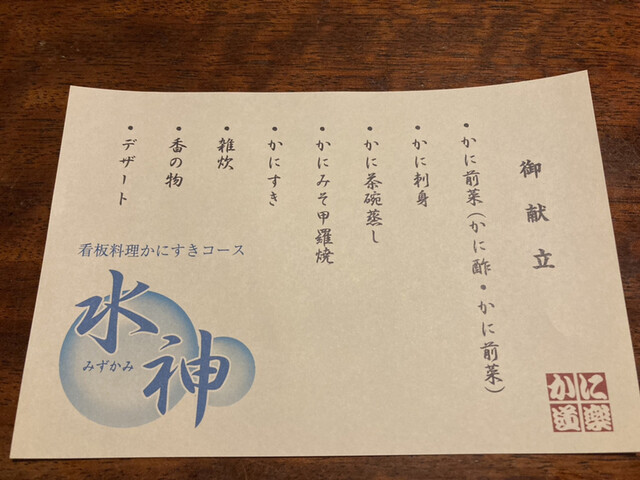 御献立
・かに前菜(かに酢・かに前菜)
・かに刺身
・かに茶碗蒸し
・かにみそ甲羅焼
・かにすき
・雑炊
・香の物
・デザート
看板料理かにすきコース
水神
みずかみ
かに道楽